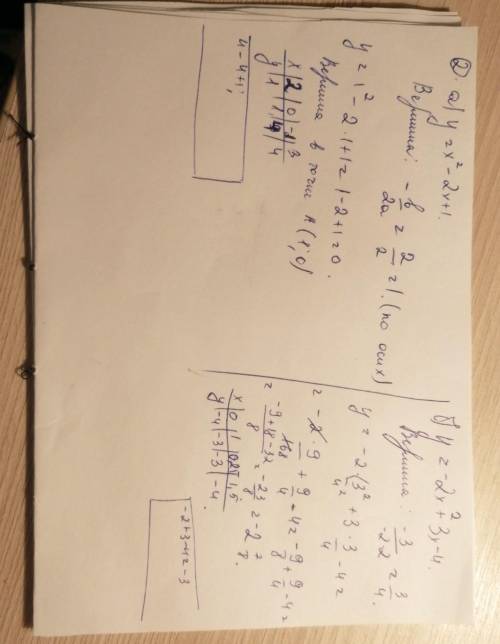 2. а) y = x² - 2x + 1.
Вершина: -b/2a = 2/2 = 1. (по оси x)
y = 1² - 2·1 + 1 = 1 - 2 + 1 = 0.
Вершина в точке A (1; 0)
x | 2 | 0 | -1 | 3
y | 1 | 1 | 4 | 4
4 - 4 + 1;
б) y = -2x² + 3x - 4.
Вершина: -3/-2·2 = 3/4.
y = -2·3²/4² + 3·3/4 - 4 =
= -2·9/168 + 9/4 - 4 = -9/8 + 9/4 - 4 =
= -9+18-32/8 = -23/8 = -2 7/8.
x | 0 | 1 | 0,5 | 1,5
y | -4 | -3 | -3 | -4.
-2+3-4=-3